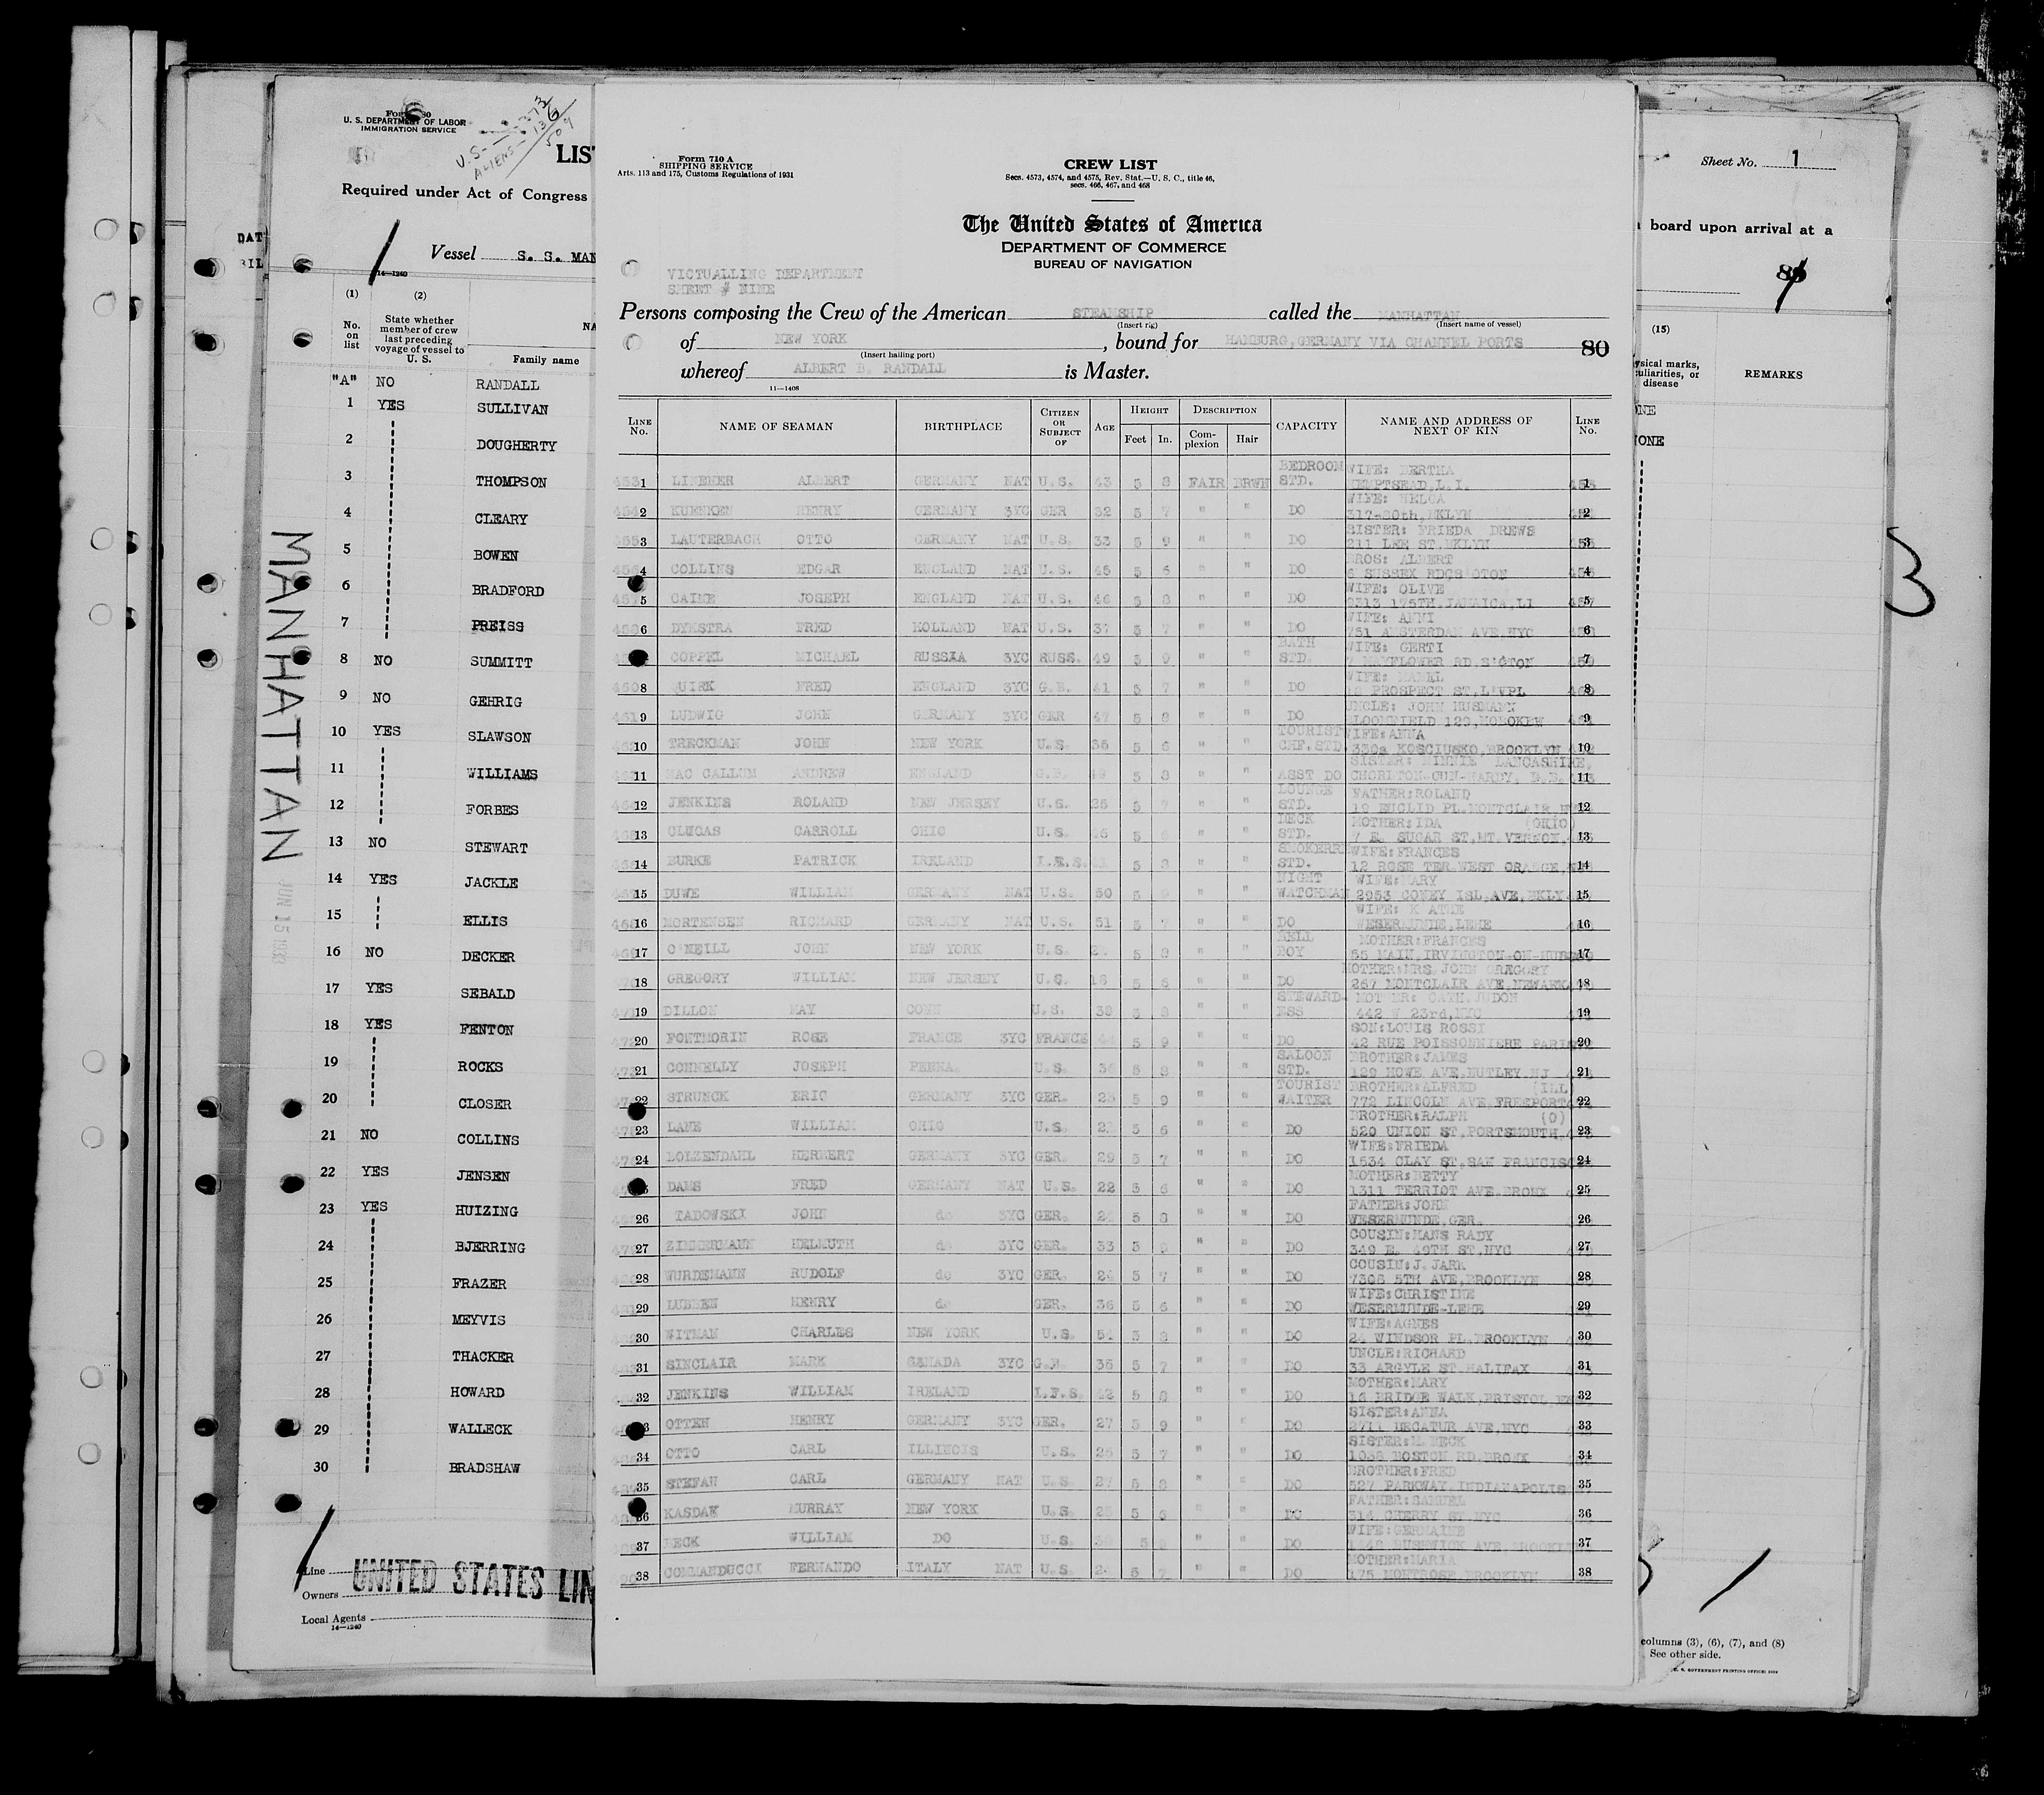 Form 680
U. S. DEPARTMENT OF LABOR
IMMIGRATION SERVICE
U.S.- 373
ALIENS- 136
509
LIST
Required under Act of Congress
Vessel S. S. MAN
14—1240
(1) (2)
No. on list
State whether member of crew last preceding voyage of vessel to U. S.
NA
Family name
"A" NO RANDALL
1 YES SULLIVAN
2 DOUGHERTY
3 THOMPSON
4 CLEARY
5 BOWEN
6 BRADFORD
7 PREISS
8 NO SUMMITT
9 NO GEHRIG
10 YES SLAWSON
11 WILLIAMS
12 FORBES
13 NO STEWART
14 YES JACKLE
15 ELLIS
16 NO DECKER
17 YES SEBALD
18 YES FENTON
19 ROCKS
20 CLOSER
21 NO COLLINS
22 YES JENSEN
23 YES HUIZING
24 BJERRING
25 FRAZER
26 MEYVIS
27 THACKER
28 HOWARD
29 WALLECK
30 BRADSHAW
Line
Owners UNITED STATES LIN
Local Agents
14—1240
MANHATTAN
JUN 15 1933
DAT
Form 710 A
SHIPPING SERVICE
Arts. 113 and 175, Customs Regulations of 1931
CREW LIST
Secs. 4573, 4574, and 4575, Rev. Stat.—U. S. C., title 46,
secs. 466, 467, and 468
The United States of America
DEPARTMENT OF COMMERCE
BUREAU OF NAVIGATION
VICTUALLING DEPARTMENT
SHEET # NINE
Persons composing the Crew of the American STEAMSHIP called the MANHATTAN
(Insert rig) (Insert name of vessel)
of NEW YORK , bound for HAMBURG,GERMANY VIA CHANNEL PORTS 80
(Insert hailing port)
whereof ALBERT B. RANDALL is Master.
11—1408
LINE No. NAME OF SEAMAN BIRTHPLACE CITIZEN OR SUBJECT OF AGE HEIGHT Feet In. DESCRIPTION Complexion Hair CAPACITY NAME AND ADDRESS OF NEXT OF KIN LINE No.
1 ALBERT GERMANY NAT U.S. 43 5 8 FAIR BRWN BEDROOM STD. WIFE: BERTHA HEMPTSEAD,L.I. 1
2 KUENKEN HENRY GERMANY 3YC GER 32 5 7 " " DO WIFE: HELGA BKLYN 2
3 LAUTERBACH OTTO GERMANY NAT U.S. 33 5 9 " " DO SISTER: FRIEDA DREWS 211 LEE ST.BKLYN 3
4 COLLINS EDGAR ENGLAND NAT U.S. 45 5 6 " " DO BROS: ALBERT 6 SUSSEX RD 4
5 CAINE JOSEPH ENGLAND NAT U.S. 46 5 8 " " DO WIFE: OLIVE 175TH,JAMAICA,LI 5
6 DYKSTRA FRED HOLLAND NAT U.S. 37 5 7 " " DO WIFE: ANNI 751 AMSTERDAM AVE,NYC 6
COPPEL MICHAEL RUSSIA 3YC RUSS. 49 5 9 " " BATH STD. WIFE: GERTI 7 MAYFLOWER RD.S'CTON 7
8 QUIRK FRED ENGLAND 3YC G.B. 41 5 7 " " DO WIFE: MABEL PROSPECT ST,L'VPL 8
9 LUDWIG JOHN GERMANY 3YC GER 47 5 8 " " DO UNCLE: JOHN HUSMANN BLOOMFIELD 129,HOBOKEN 9
10 TRECKMAN JOHN NEW YORK U.S. 36 5 6 " " TOURIST CHF.STD. WIFE:ANNA 330a KOSCIUSKO,BROOKLYN 10
11 MAC CALLUM ANDREW ENGLAND G.B. 5 8 " " ASST DO SISTER: MINNIE LANCASHIRE, CHORLTON-CUM-HARDY, 11
12 JENKINS ROLAND NEW JERSEY U.S. 25 5 7 " " LOUNGE STD. FATHER:ROLAND 19 EUCLID PL.MONTCLAIR 12
13 CLUCAS CARROLL OHIO U.S. 5 " " DECK STD. MOTHER:IDA (OHIO) 7 E. SUGAR ST,MT.VERNON, 13
14 BURKE PATRICK IRELAND I.F.S. 5 8 " " SMOKERM STD. WIFE:FRANCES 12 ROSE TER.WEST ORANGE, 14
15 DUWE WILLIAM GERMANY NAT U.S. 50 5 9 " " NIGHT WATCHMAN WIFE:MARY 2953 CONEY ISL.AVE,BKLY 15
16 MORTENSEN RICHARD GERMANY NAT U.S. 51 5 7 " " DO WIFE: KATHE WESERMUNDE,LEHE 16
17 O'NEILL JOHN NEW YORK U.S. 5 8 " " BELL BOY MOTHER:FRANCES 55 MAIN,IRVINGTON-ON-HUDS 17
18 GREGORY WILLIAM NEW JERSEY U.S. 18 5 6 " " DO MOTHER:MRS JOHN GREGORY 267 MONTCLAIR AVE,NEWARK 18
19 DILLON MAY CONN U.S. 38 5 8 " " STEWARDESS CATH.JUDON 442 W 23rd,NYC 19
20 FONTMORIN ROSE FRANCE 3YC FRANCE 5 9 " " DO SON:LOUIS ROSSI 42 RUE POISSONNIERE PARIS 20
21 CONNELLY JOSEPH PENNA. U.S. 36 5 8 " " SALOON STD. BROTHER:JAMES 129 HOWE AVE,NUTLEY NJ 21
22 STRUNCK ERIC GERMANY 3YC GER. 5 9 " " TOURIST WAITER BROTHER:ALFRED (ILL) 772 LINCOLN AVE,FREEPORT 22
23 LANE WILLIAM OHIO U.S. 5 6 " " DO BROTHER:RALPH (O) 520 UNION ST,PORTSMOUTH, 23
24 HERBERT GERMANY 3YC GER. 29 5 7 " " DO WIFE:FRIEDA 1534 CLAY ST,SAN FRANCISC 24
DAMS FRED GERMANY NAT U.S. 22 5 6 " " DO MOTHER:BETTY 1311 TERRIOT AVE.BRONX 25
26 TADOWSKI JOHN do 3YC GER. 5 8 " " DO FATHER:JOHN WESERMUNDE,GER. 26
27 ZIMMERMANN HELMUTH do 3YC GER. 33 5 " " DO COUSIN:HANS RADY 349 E. 49TH ST,NYC 27
28 WURDEMANN RUDOLF do 3YC GER. 24 5 7 " " DO COUSIN:J.JARK 7306 5TH AVE,BROOKLYN 28
29 LUBBEN HENRY do GER. 36 5 6 " " DO WIFE:CHRISTINE WESERMUNDE-LEHE 29
30 WITMAN CHARLES NEW YORK U.S. 51 5 8 " " DO WIFE:AGNES 24 WINDSOR PL.BROOKLYN 30
31 SINCLAIR MARK CANADA 3YC G.B. 36 5 7 " " DO UNCLE:RICHARD 33 ARGYLE ST.HALIFAX 31
32 JENKINS WILLIAM IRELAND I.F.S. 42 5 8 " " DO MOTHER:MARY 16 BRIDGE WALK,BRISTOL 32
OTTEN HENRY GERMANY 3YC GER. 27 5 9 " " DO SISTER:ANNA 2711 DECATUR AVE,NYC 33
34 OTTO CARL ILLINOIS U.S. 25 5 7 " " DO BECK 1038 BOSTON RD.BRONX 34
35 STEFAN CARL GERMANY NAT U.S. 27 5 8 " " DO BROTHER:FRED 527 PARKWAY.INDIANAPOLIS 35
36 KASDAN MURRAY NEW YORK U.S. 25 5 6 " " DO FATHER:SAMUEL 314 CHERRY ST NYC 36
37 BECK WILLIAM DO U.S. 5 " " DO WIFE:GERMAINE BUSHWICK AVE,BROOKL 37
38 COMMANDUCCI FERNANDO ITALY NAT U.S. 5 7 " " DO MOTHER:MARIA 175 MONTROSE,BROOKLYN 38
Sheet No. 1
board upon arrival at a
(15)
ysical marks, culiarities, or disease
REMARKS
ONE
3
columns (3), (6), (7), and (8)
See other side.
U. S. GOVERNMENT PRINTING OFFICE